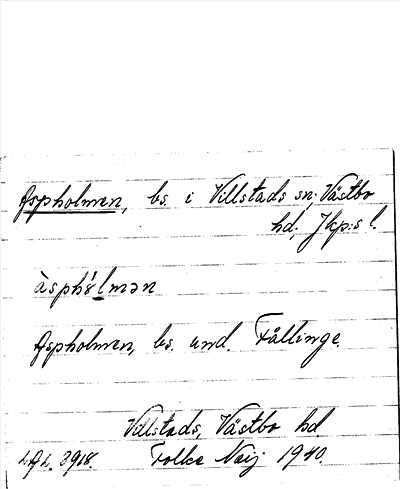 Aspholmen, bs. i Villstads sn; Västbo
hd, Jkp:s l.
àsphɤ́lmən
Aspholmen, bs. und. Fållinge.
Villstads, Västbo hd.
LAL. 3918. Folke Neij 1940.